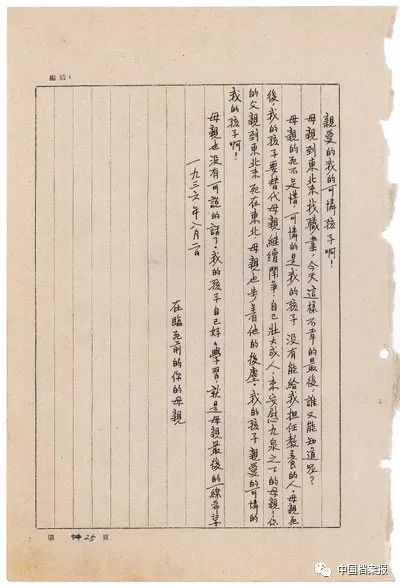 編號:
親愛的我的可憐孩子啊!
母親到東北來找職業,今天這樣不幸的最後,誰又能知道呢?
母親的死不足惜,可憐的是我的孩子,沒有能給我担任教養的人。母親死
後,我的孩子要替代母親繼續鬥爭,自己壯大成人,來安慰九泉之下的母親!你
的父親到東北來死在東北,母親也步着他的後塵。我的孩子,親愛的可憐的
我的孩子啊!
母親也沒有可說的話了。我的孩子自己好々學習,就是母親最後的一線希望
一九三六年八月二日
在臨死前的你的母親
第 25 頁
中国档案报